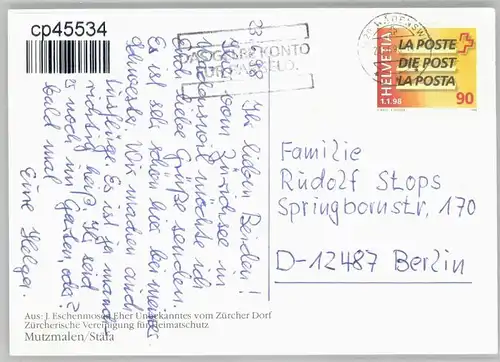 cp45534
DAS GELBE KONTO
HELVETIA
LA POSTE
DIE POST
LA POSTA
1.1.98
90
Ihr lieben Beiden!
Hier vom Zürichsee in
Wädenswil möchte ich
Euch liebe Grüße senden.
Es ist sehr schön hier bei meiner
Schwester. Wir machen auch
Ausflüge. Es ist ja manch-
richtig heiß. Ihr seid
es noch im Garten, oder?
bald mal
Eure Helga.
Familie
Rudolf Stops
Springbornstr. 170
D-12487 Berlin
Aus: J. Eschenmoser Eher Unbekanntes vom Zürcher Dorf
Zürcherische Vereinigung für Heimatschutz
Mutzmalen/Stäfa